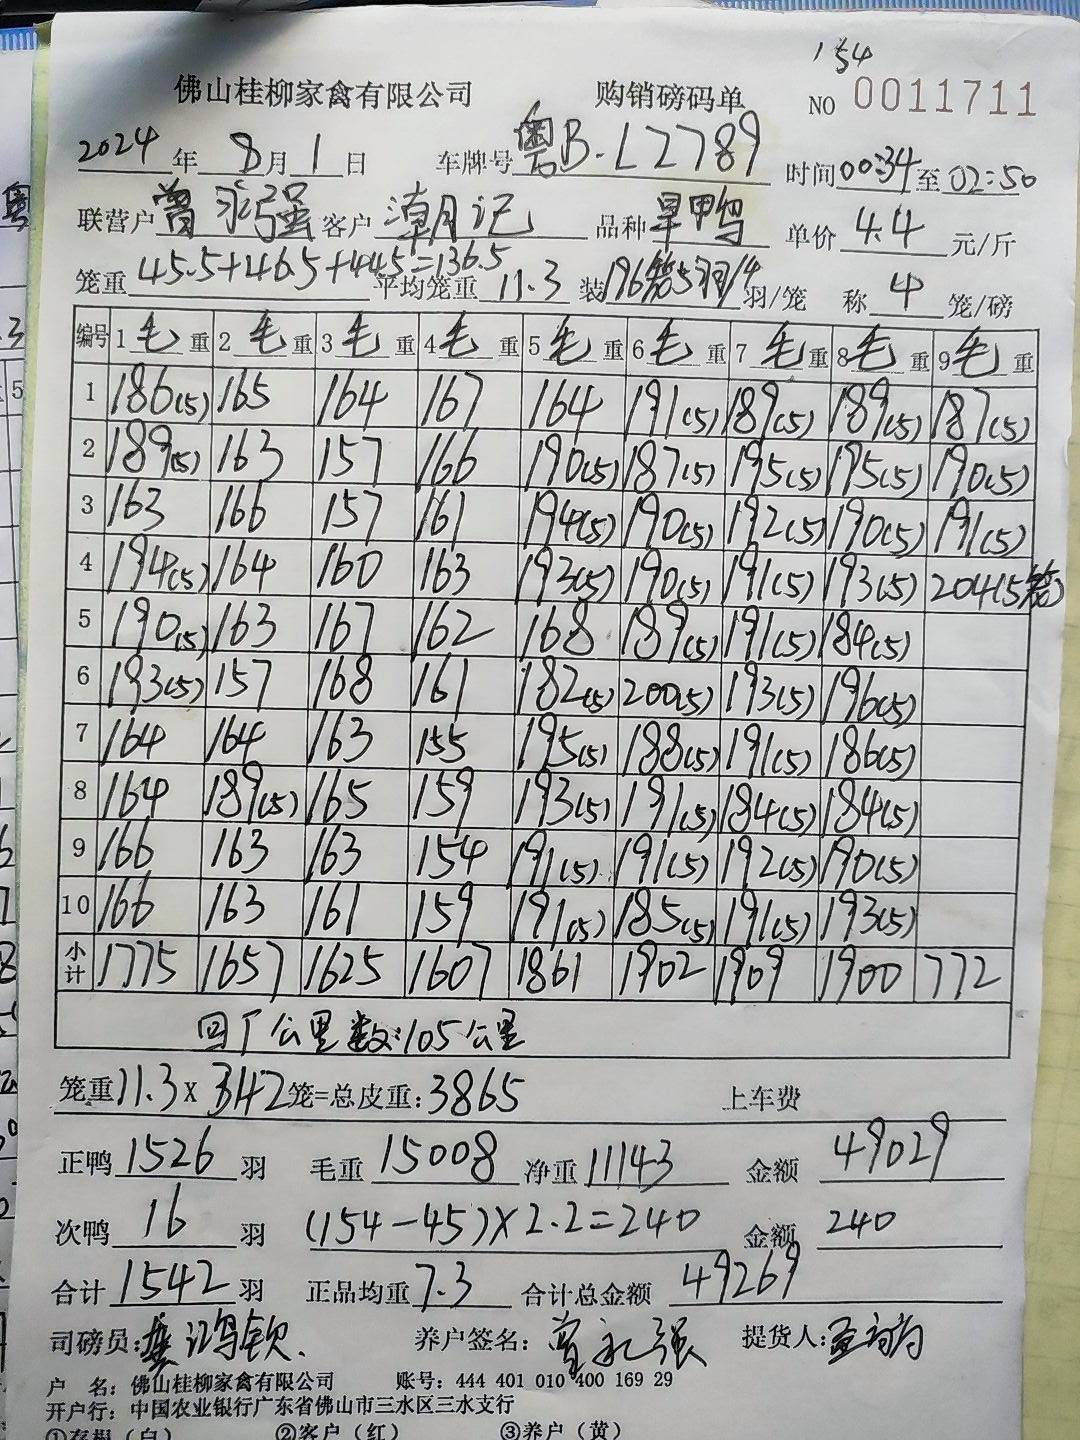 154
佛山桂柳家禽有限公司 购销磅码单 NO 0011711
2024年8月1日 车牌号粤B·L2789 时间00:34至02:50
联营户曾永强 客户潮记 品种旱鸭 单价4.4元/斤
笼重45.5+46.5+44.5=136.5 平均笼重11.3 装196笼5羽/4羽/笼 称4笼/磅
编号 1毛重 2毛重 3毛重 4毛重 5毛重 6毛重 7毛重 8毛重 9毛重
1 186(5) 165 164 167 164 191(5) 189(5) 189(5) 187(5)
2 189(5) 163 157 166 190(5) 187(5) 195(5) 195(5) 190(5)
3 163 166 157 161 194(5) 190(5) 192(5) 190(5) 191(5)
4 194(5) 164 160 163 193(5) 190(5) 191(5) 193(5) 204(5笼)
5 190(5) 163 167 162 168 189(5) 191(5) 184(5)
6 193(5) 157 168 161 182(5) 200(5) 193(5) 196(5)
7 164 164 163 155 195(5) 188(5) 191(5) 186(5)
8 164 189(5) 165 159 193(5) 191(5) 184(5) 184(5)
9 166 163 163 154 191(5) 191(5) 192(5) 190(5)
10 166 163 161 159 191(5) 185(5) 191(5) 193(5)
小计 1775 1657 1625 1607 1861 1902 1909 1900 772
回厂公里数:105公里
笼重11.3×342笼=总皮重:3865 上车费
正鸭1526羽 毛重15008 净重11143 金额49029
次鸭16羽 (154-45)×2.2=240 金额240
合计1542羽 正品均重7.3 合计总金额49269
司磅员: 养户签名:曾永强 提货人:
户 名:佛山桂柳家禽有限公司 账号:444 401 010 400 169 29
开户行:中国农业银行广东省佛山市三水区三水支行
①存根(白) ②客户(红) ③养户(黄)